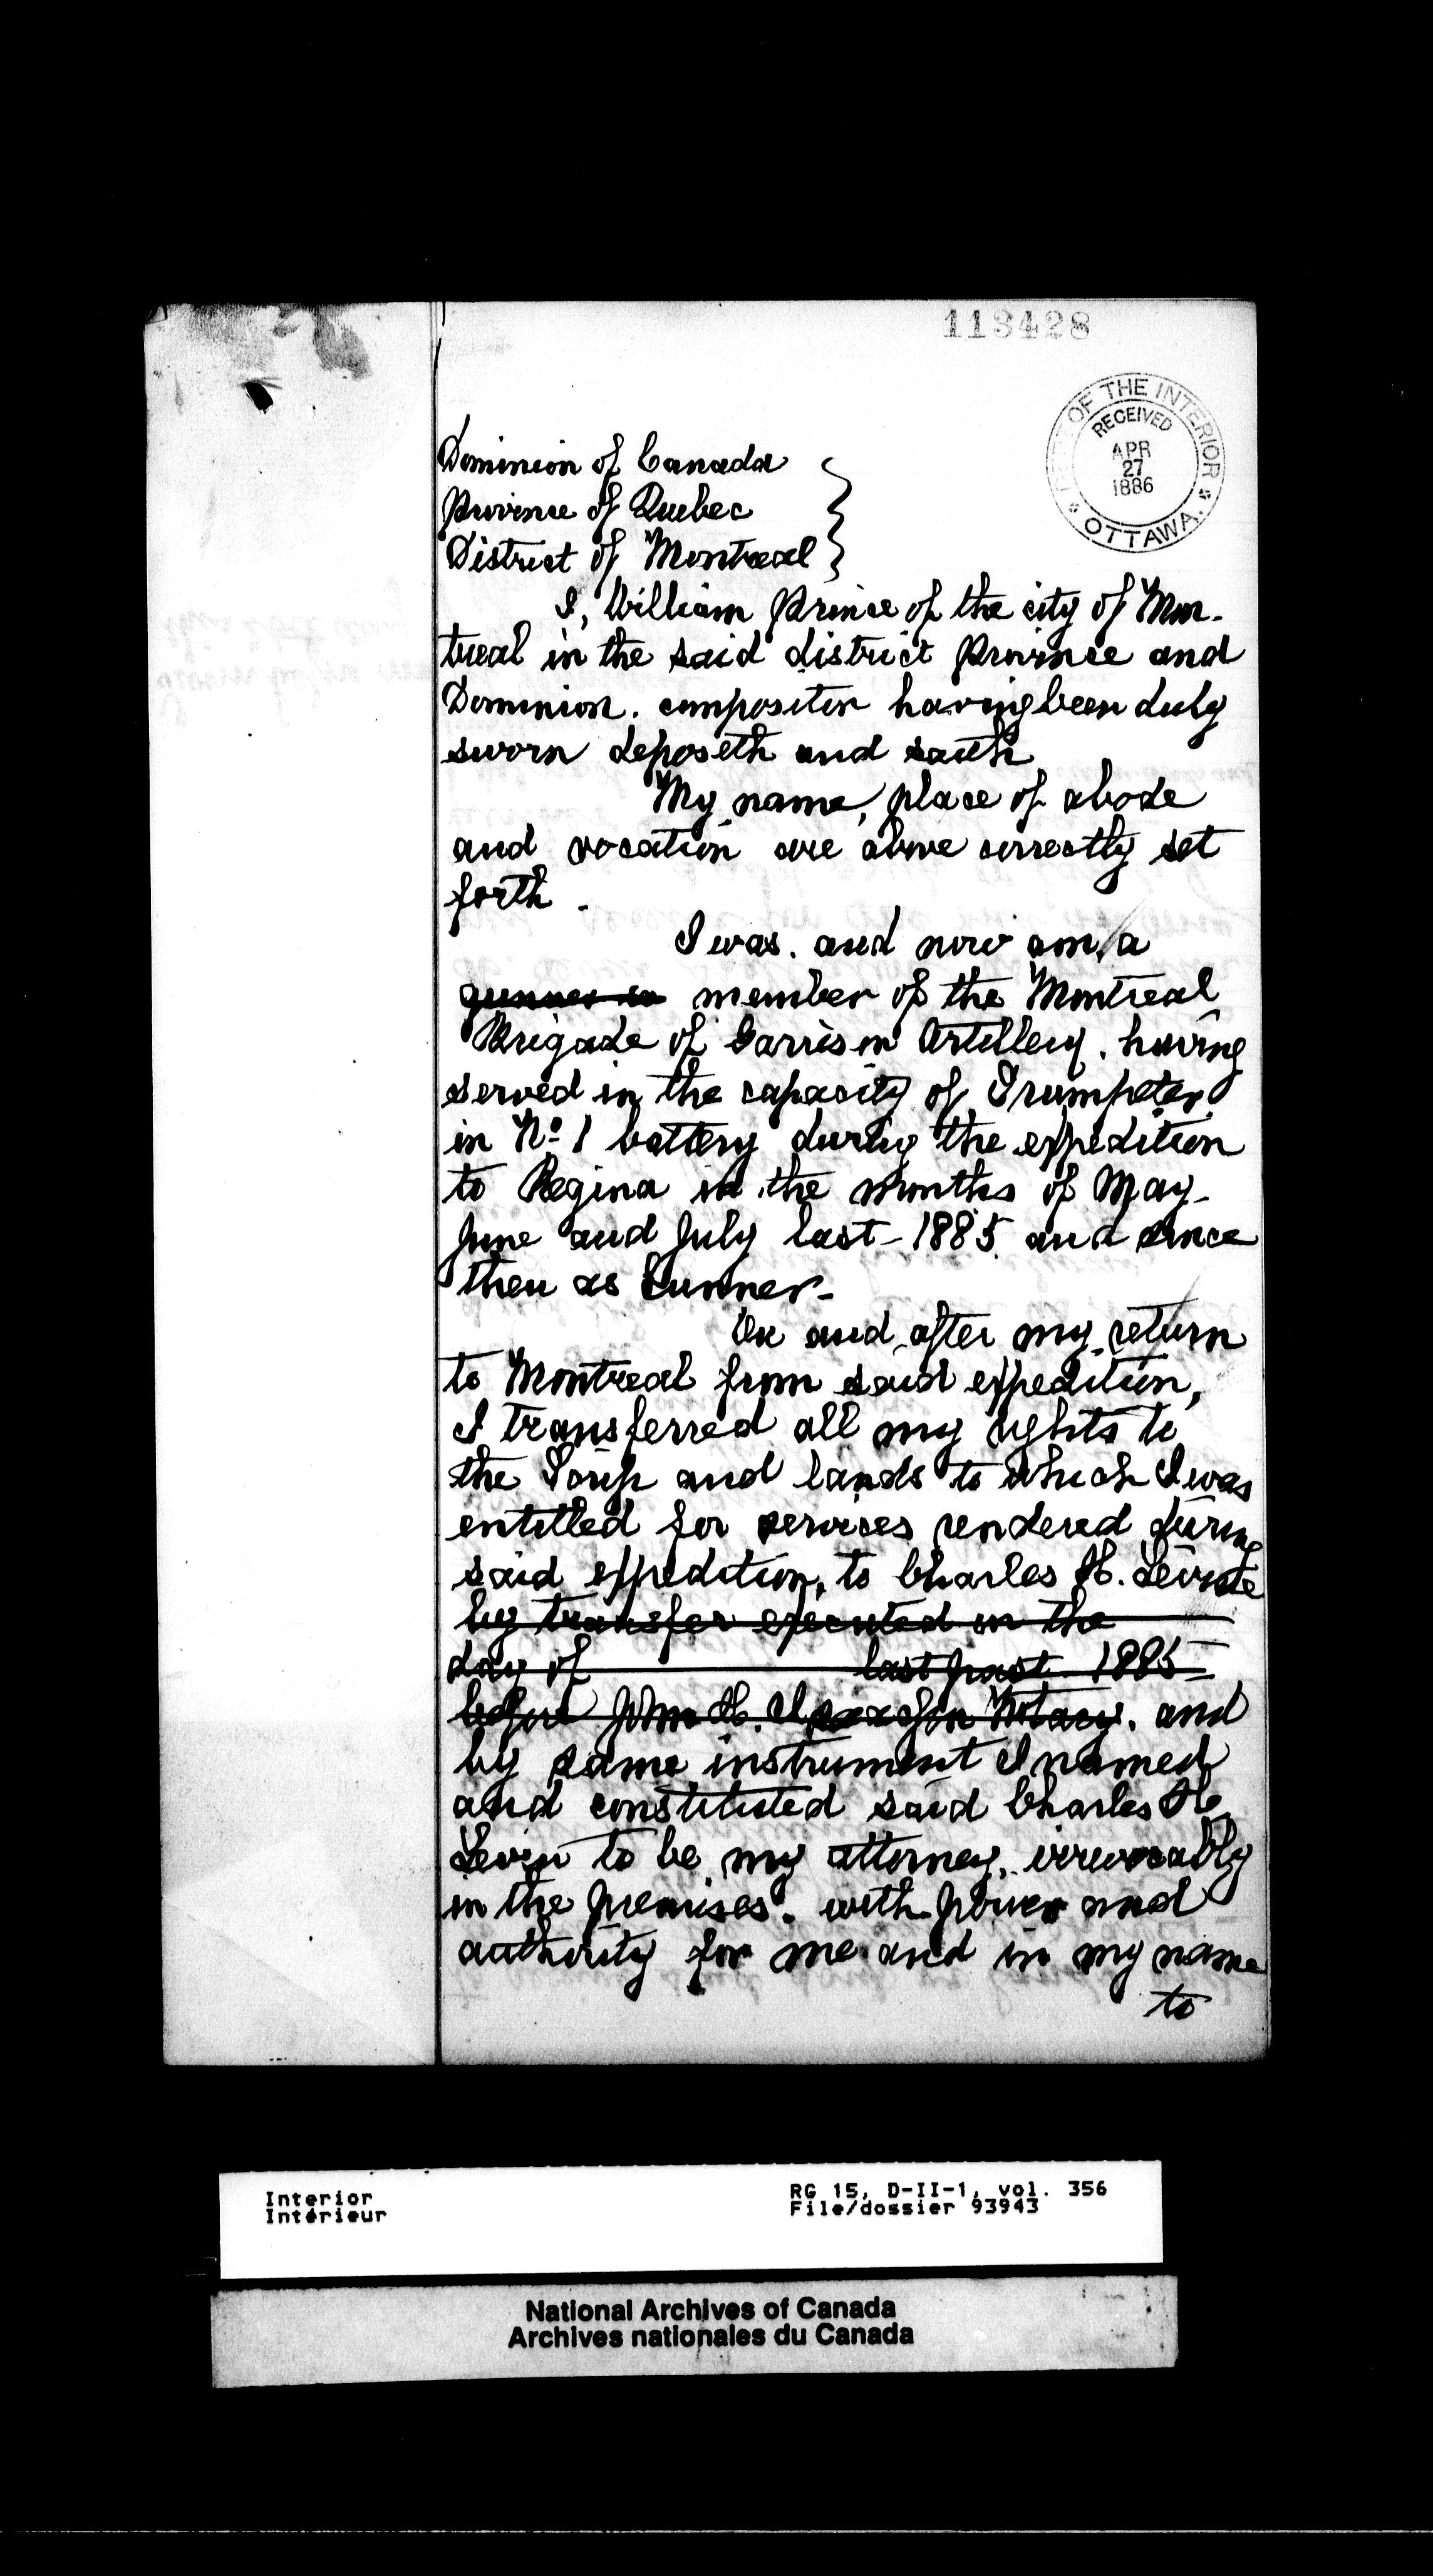 113428
DEPT OF THE INTERIOR
RECEIVED
APR
27
1886
OTTAWA.
Dominion of Canada
Province of Quebec
District of Montreal
I, William Prince of the city of Mon-
treal in the said district Province and
Dominion. compositor having been duly
sworn deposeth and saith
My name, place of abode
and vocation are above correctly set
forth -
I was. and now am, a
gunner in member of the Montreal
Brigade of Garrison Artillery. having
served in the capacity of Trumpeter
in No. 1 battery during the expedition
to Regina in the months of May-
June and July last - 1885 and since
then as Gunner-
On and after my return
to Montreal from said expedition,
I transferred all my rights to
the Scrip and lands to which I was
entitled for services rendered during
said expedition, to Charles H. Levin
by transfer executed on the
day of last past 1885
before John H. Notary. and
by same instrument I named
and constituted said Charles H.
Levin to be my attorney, irrevocably
in the premises. with power and
authority for me and in my name
to
Interior
Intérieur
RG 15, D-II-1, vol. 356
File/dossier 93943
National Archives of Canada
Archives nationales du Canada